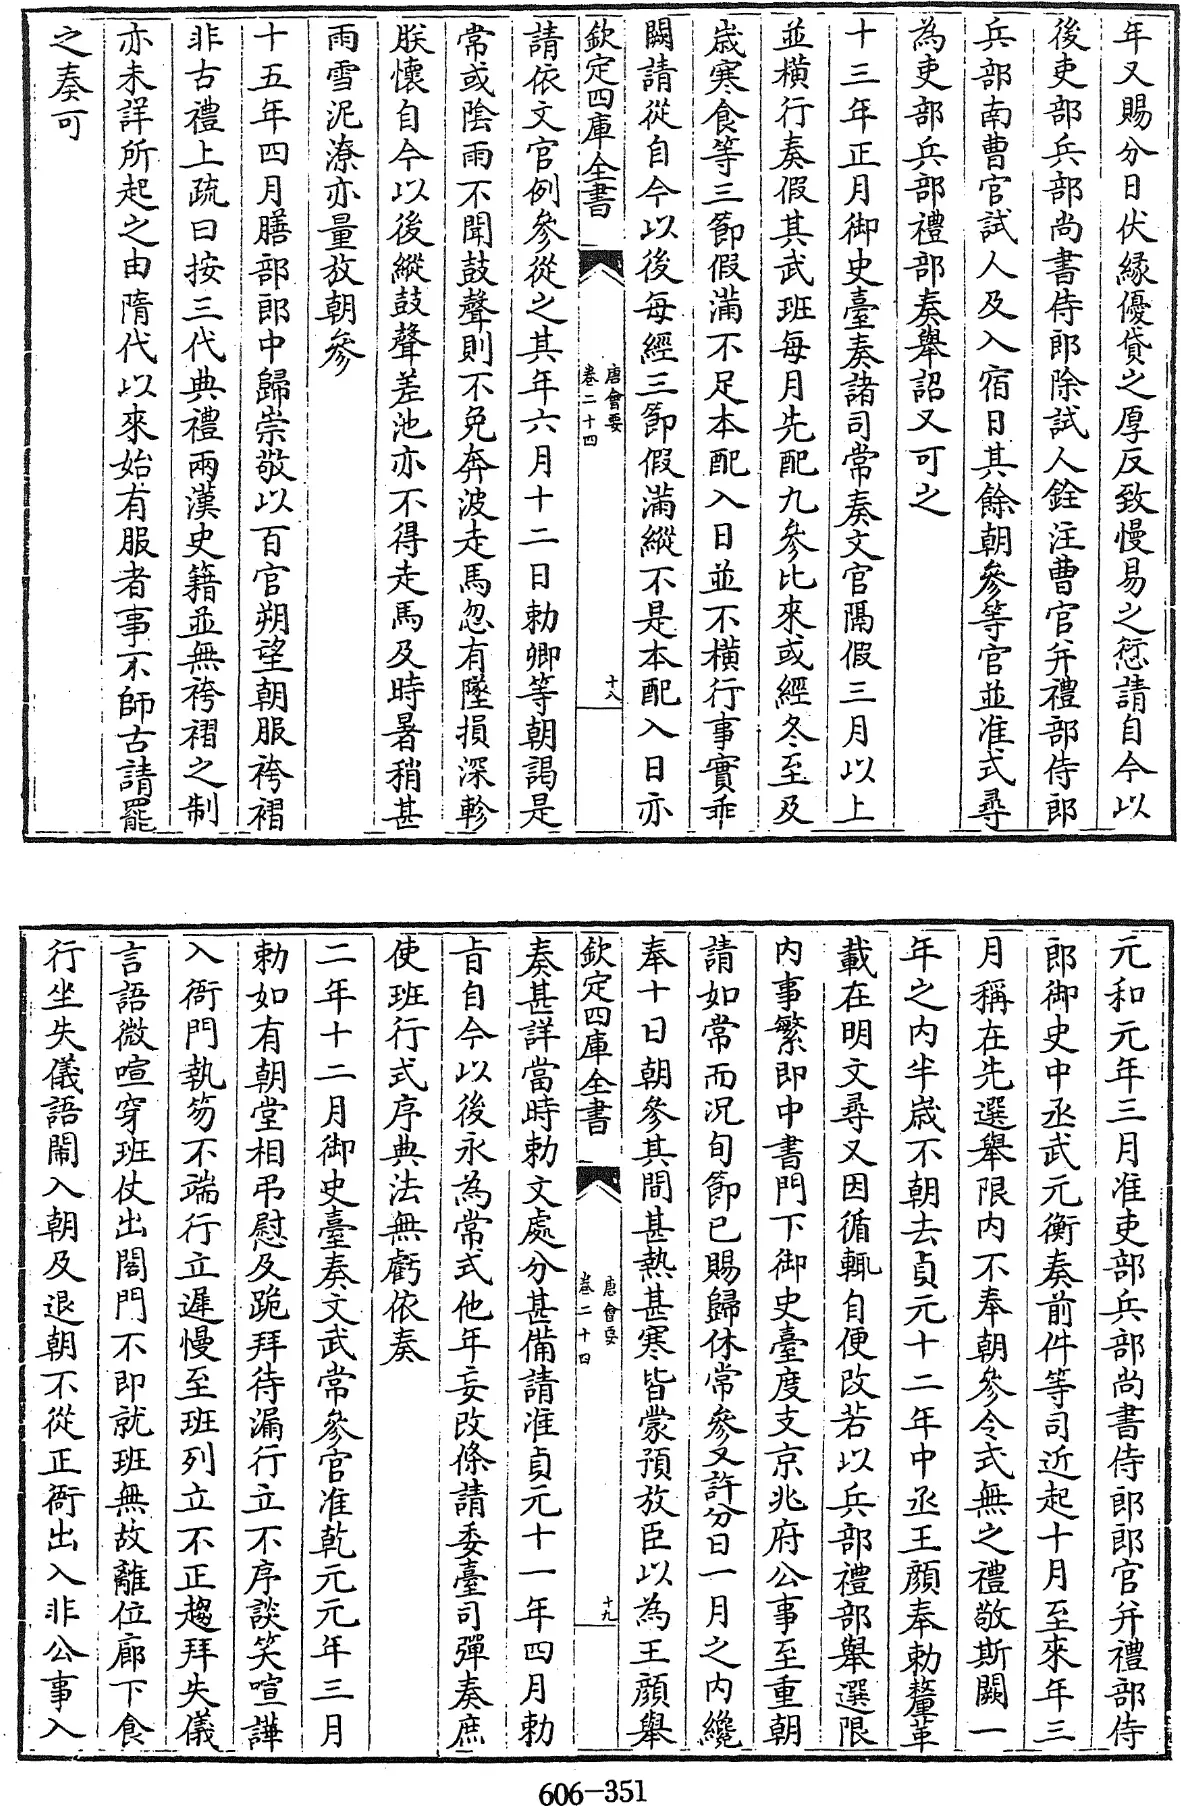 年又賜分日伏縁優貸之厚反致慢易之愆請自今以
後吏部兵部尚書侍郎除試人銓注曹官并禮部侍郎
兵部南曹官試人及入宿日其餘朝參等官並准式尋
為吏部兵部禮部奏舉詔又可之
十三年正月御史臺奏諸司常奏文官隔假三月以上
並橫行奏假其武班每月先配九參比來或經冬至及
歲寒食等三節假滿不足本配入日並不橫行事實乖
闕請從自今以後每經三節假滿縱不是本配入日亦
欽定四庫全書
唐會要
卷二十四
十八
請依文官例參從之其年六月十二日勅卿等朝謁是
常或陰雨不聞鼓聲則不免奔波走馬忽有墜損深軫
朕懷自今以後縱鼓聲差池亦不得走馬及時暑稍甚
雨雪泥潦亦量放朝參
十五年四月膳部郎中歸崇敬以百官朔望朝服袴褶
非古禮上疏曰按三代典禮兩漢史籍並無袴褶之制
亦未詳所起之由隋代以來始有服者事不師古請罷
之奏可
元和元年三月准吏部兵部尚書侍郎郎官并禮部侍
郎御史中丞武元衡奏前件等司近起十月至來年三
月稱在先選舉限内不奉朝參令式無之禮敬斯闕一
年之内半歲不朝去貞元十二年中丞王顔奉勅釐革
載在明文尋又因循輒自便改若以兵部禮部舉選限
内事繁即中書門下御史臺度支京兆府公事至重朝
請如常而况旬節已賜歸休常參又許分日一月之内纔
奉十日朝參其間甚熱甚寒皆蒙預放臣以為王顔舉
欽定四庫全書
唐會要
卷二十四
十九
奏甚詳當時勅文處分甚備請准貞元十一年四月勅
㫖自今以後永為常式他年妄改條請委臺司彈奏庶
使班行式序典法無虧依奏
二年十二月御史臺奏文武常參官准乾元元年三月
勅如有朝堂相弔慰及跪拜待漏行立不序談笑喧譁
入衙門執笏不端行立遲慢至班列立不正趨拜失儀
言語微喧穿班仗出閤門不即就班無故離位廊下食
行坐失儀語鬧入朝及退朝不從正衙出入非公事入
606-351